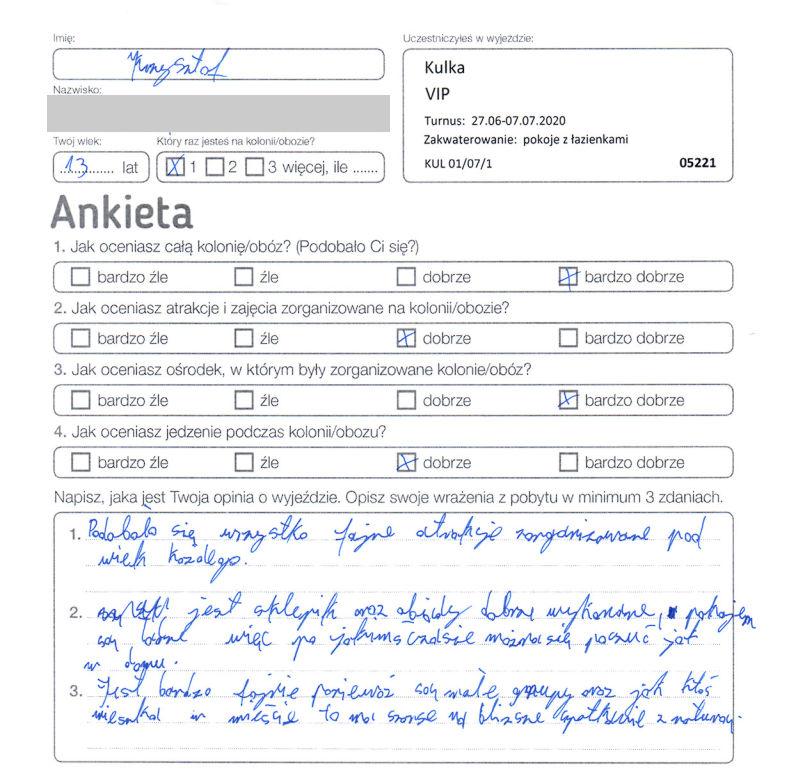 Imię:
Krzysztof
Nazwisko:
Twój wiek: Który raz jesteś na kolonii/obozie?
13 lat 1 2 3 więcej, ile .......
Uczestniczyłeś w wyjeździe:
Kulka
VIP
Turnus: 27.06-07.07.2020
Zakwaterowanie: pokoje z łazienkami
KUL 01/07/1 05221
Ankieta
1. Jak oceniasz całą kolonię/obóz? (Podobało Ci się?)
bardzo źle źle dobrze bardzo dobrze
2. Jak oceniasz atrakcje i zajęcia zorganizowane na kolonii/obozie?
bardzo źle źle dobrze bardzo dobrze
3. Jak oceniasz ośrodek, w którym były zorganizowane kolonie/obóz?
bardzo źle źle dobrze bardzo dobrze
4. Jak oceniasz jedzenie podczas kolonii/obozu?
bardzo źle źle dobrze bardzo dobrze
Napisz, jaka jest Twoja opinia o wyjeździe. Opisz swoje wrażenia z pobytu w minimum 3 zdaniach.
1. Podobało się wszystko fajne atrakcje zorganizowane pod
wiek każdego.
2. jest sklepik oraz obiady dobrze wykonane, pokoje
są więc po jakimś czasie można się poczuć jak
w domu.
3. Jest bardzo fajnie ponieważ są małe grupy oraz jak ktoś
mieszka w mieście to ma szanse na bliższe spotkanie z naturą.